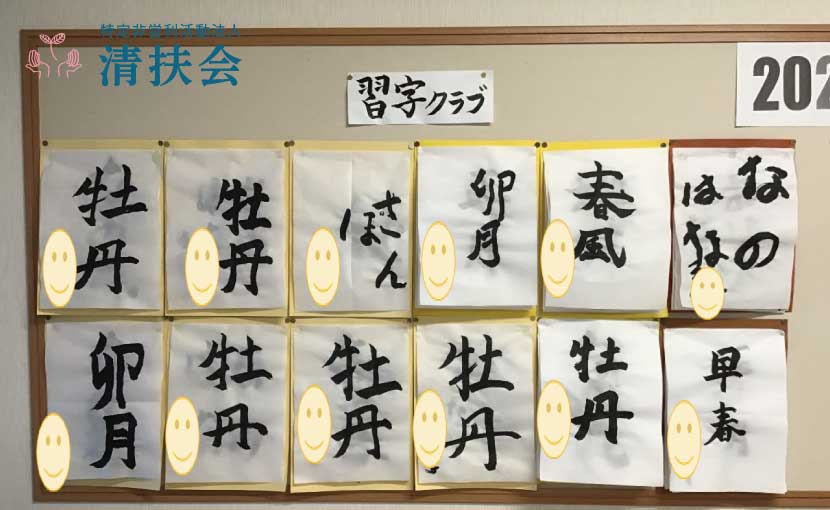 特定非営利活動法人
清扶会
習字クラブ
202
牡丹
牡丹
さん
ぽ
卯月
春風
なの
はな
卯月
牡丹
牡丹
牡丹
牡丹
早春